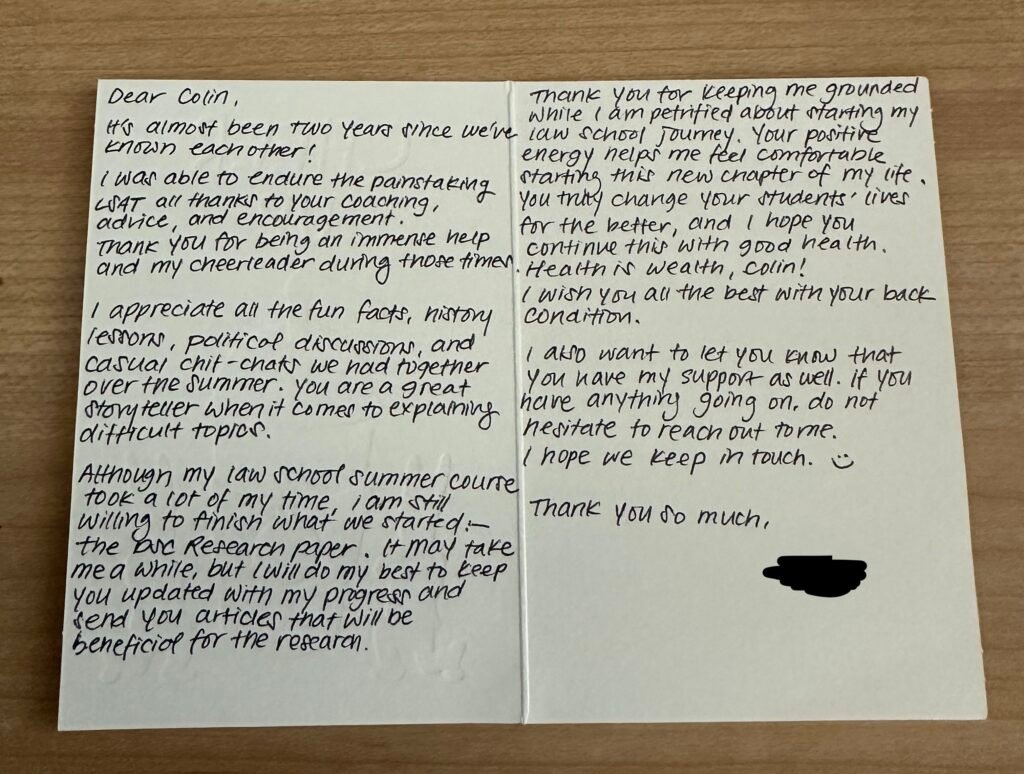 Dear Colin,
It's almost been two years since we've
known each other!
I was able to endure the painstaking
LSAT all thanks to your coaching,
advice, and encouragement.
Thank you for being an immense help
and my cheerleader during those times.
I appreciate all the fun facts, history
lessons, political discussions, and
casual chit-chats we had together
over the summer. You are a great
storyteller when it comes to explaining
difficult topics.
Although my law school summer course
took a lot of my time, I am still
willing to finish what we started:-
the Research paper. It may take
me a while, but I will do my best to keep
you updated with my progress and
send you articles that will be
beneficial for the research.
Thank you for keeping me grounded
while I am petrified about starting my
law school journey. Your positive
energy helps me feel comfortable
starting this new chapter of my life.
You truly change your students' lives
for the better, and I hope you
continue this with good health.
Health is wealth, Colin!
I wish you all the best with your back
condition.
I also want to let you know that
you have my support as well. If you
have anything going on, do not
hesitate to reach out to me.
I hope we keep in touch.
Thank you so much,